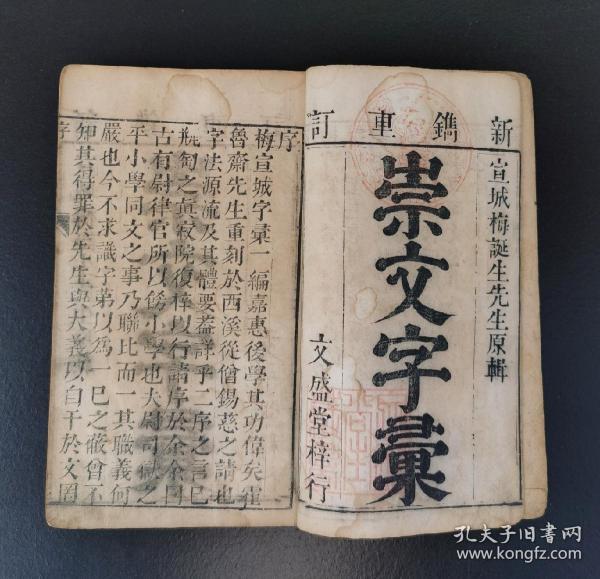 新鐫重訂
宣城梅誕生先生原輯
崇文字彙
文盛堂梓行
序
梅宣城字彙一編嘉惠後學其功偉矣
魯齋先生重刻於西溪從僧錫慈之請也
字法源流及其體要葢詳乎二序之言已
之眞寂院復梓以行請序於余余因
古有尉律官所以脩小學也夫尉司獄之
平小學同文之事乃聯比而一其職義何
嚴也今不求識字第以爲一巳之蔽曾不
知其得罪於先生與大義以自干於文罔
序
孔夫子旧书网
www.kongfz.com